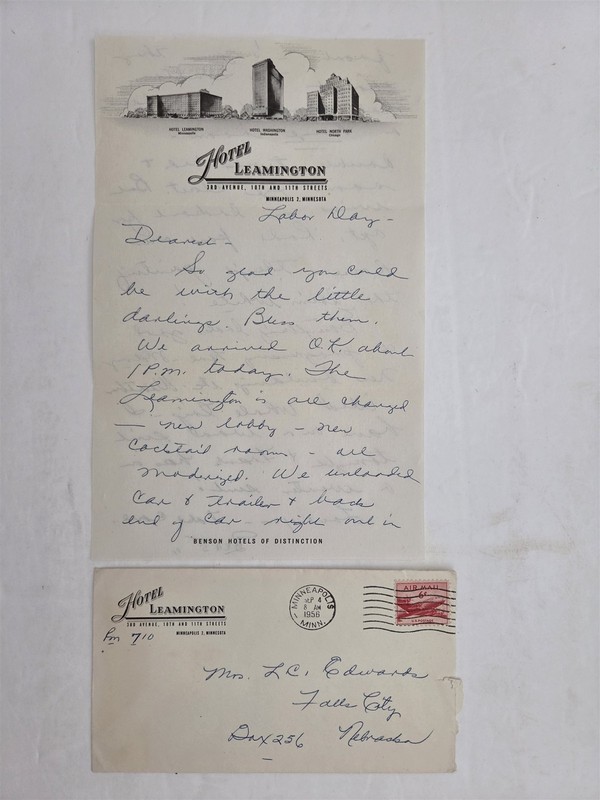 HOTEL LEAMINGTON
Minneapolis
HOTEL WASHINGTON
Indianapolis
HOTEL NORTH PARK
Chicago
HOTEL
LEAMINGTON
3RD AVENUE, 10TH AND 11TH STREETS
MINNEAPOLIS 2, MINNESOTA
Labor Day -
Dearest -
So glad you could
be with the little
darlings. Bless them.
We arrived O.K. about
1 P.M. today. The
Leamington is all changed
— new lobby — new
Cocktail room - all
modernized. We unloaded
Car & trailer & back
end of car right out in
BENSON HOTELS OF DISTINCTION
HOTEL
LEAMINGTON
3RD AVENUE, 10TH AND 11TH STREETS
MINNEAPOLIS 2, MINNESOTA
Rm 710
MINNEAPOLIS
SEP 4
8 AM
1956
MINN.
AIR MAIL
6¢
U.S. POSTAGE
Mrs. L.C. Edwards
Falls City
Box 256 Nebraska